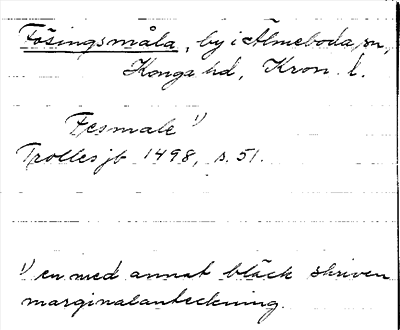 Fösingsmåla, by i Älmeboda sn,
Konga hd, Kron. l.
Fesmale 1)
Trolles jb 1498, s. 51.
1) en med annat bläck skriven
marginalanteckning.